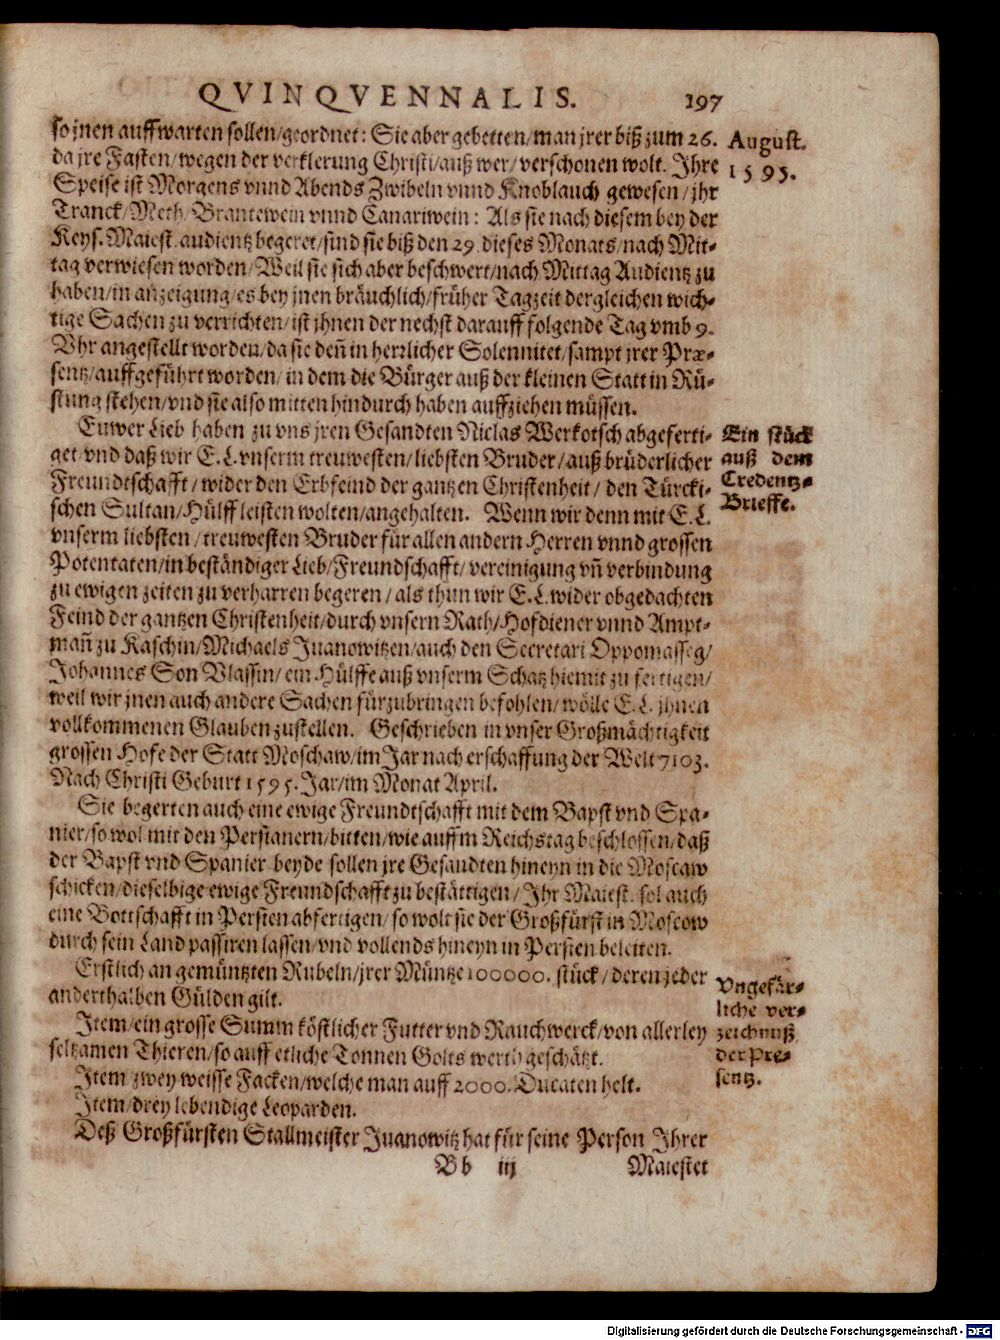 QVINQVENNALIS. 197
so jnen auffwarten sollen/geordnet: Sie aber gebetten/man jrer biß zum 26.
August.
1595.
da jre Fasten/wegen der verklerung Christi/auß wer/verschonen wolt. Ihre
Speise ist Morgens vnnd Abends Zwibeln vnnd Knoblauch gewesen/jhr
Tranck/Meth/Brantewein vnnd Canariwein: Als sie nach diesem bey der
Keys. Maiest. audientz begeret/sind sie biß den 29. dieses Monats/nach Mit-
tag verwiesen worden/Weil sie sich aber beschwert/nach Mittag Audientz zu
haben/in anzeigung/es bey jnen bräuchlich/früher Tagzeit dergleichen wich-
tige Sachen zu verrichten/ist jhnen der nechst darauff folgende Tag vmb 9.
Vhr angestellt worden/da sie deñ in herrlicher Solennitet/sampt jrer Præ-
sentz/auffgeführt worden/in dem die Bürger auß der kleinen Statt in Rü-
stung stehen/vnd sie also mitten hindurch haben auffziehen müssen.
Euwer Lieb haben zu vns jren Gesandten Niclas Werkotsch abgeferti-
Ein stück
auß dem
Credentz-
Brieffe.
get vnd daß wir E. L. vnserm treuwesten/liebsten Bruder/auß brüderlicher
Freundtschafft/wider den Erbfeind der gantzen Christenheit/den Türcki-
schen Sultan/Hülff leisten wolten/angehalten. Wenn wir denn mit E. L.
vnserm liebsten/treuwesten Bruder für allen andern Herren vnnd grossen
Potentaten/in beständiger Lieb/Freundschafft/vereinigung vñ verbindung
zu ewigen zeiten zu verharren begeren/als thun wir E. L. wider obgedachten
Feind der gantzen Christenheit/durch vnsern Rath/Hofdiener vnnd Ampt-
mañ zu Kaschin/Michaels Iuanowitzen/auch den Secretari Oppomasseg/
Johannes Son Vlassin/ein Hülffe auß vnserm Schatz hiemit zu fertigen/
weil wir jnen auch andere Sachen fürzubringen befohlen/wölle E. L. jhnen
vollkommenen Glauben zustellen. Geschrieben in vnser Großmächtigkeit
grossen Hofe der Statt Moschaw/im Jar nach erschaffung der Welt 7103.
Nach Christi Geburt 1595. Jar/im Monat April.
Sie begerten auch eine ewige Freundtschafft mit dem Bapst vnd Spa-
nier/so wol mit den Persianern/bitten/wie auffm Reichstag beschlossen/daß
der Bapst vnd Spanier beyde sollen jre Gesandten hineyn in die Moscaw
schicken/dieselbige ewige Freundschafft zu bestättigen/Ihr Maiest. sol auch
eine Bottschafft in Persien abfertigen/so wolt sie der Großfürst in Moscow
durch sein Land passiren lassen/vnd vollends hineyn in Persien beleiten.
Erstlich an gemüntzten Rubeln/jrer Müntze 100000. stück/deren jeder
Vngefär-
liche ver-
zeichnuß
der Pre-
sentz.
anderthalben Gülden gilt.
Item/ein grosse Summ köstlicher Futter vnd Rauchwerck/von allerley
seltzamen Thieren/so auff etliche Tonnen Golts werth geschätzt.
Item zwey weisse Facken/welche man auff 2000. Ducaten helt.
Item/drey lebendige Leoparden.
Deß Großfürsten Stallmeister Iuanowitz hat für seine Person Ihrer
Bb iij Maiestet
Digitalisierung gefördert durch die Deutsche Forschungsgemeinschaft - DFG